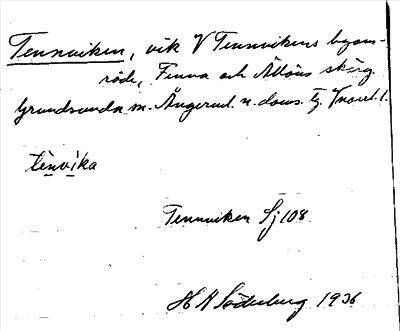 Tennviken, vik V Tennvikens byom-
råde, Finna och Ållöns skärg.
Grundsunda m. Ångerml. n. doms.
tènvika
Tennviken Sj 108
H N Söderberg 1936